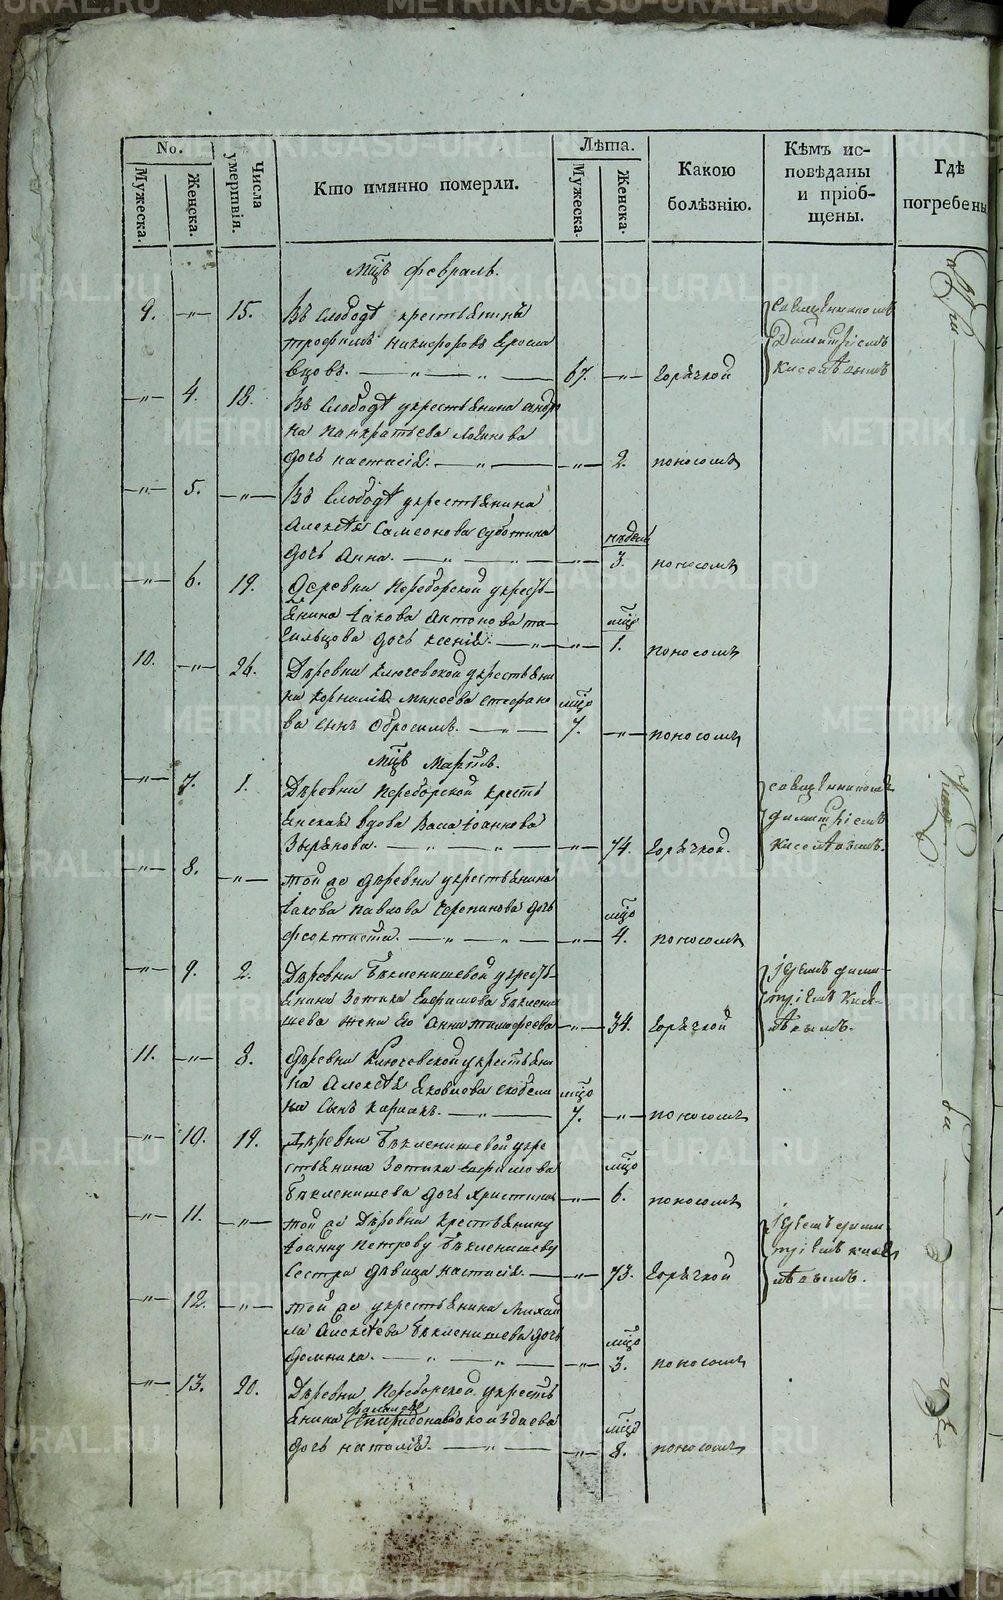 No.
Мужеска.
Женска.
Числа умертвія.
Кто имянно померли.
Лѣта.
Мужеска.
Женска.
Какою болѣзнію.
Кѣмъ исповѣданы и пріобщены.
Гдѣ погребены
Мцъ февраль.
9. —"— 15. Въ Слободѣ крестьянинъ
трофимъ никифоровъ
67. —"— горячкой
священникомъ
Димитріемъ
—"— 4. 18. Въ Слободѣ у крестьянина
на панкратьева
дочь настасія. —"— 2. поносомъ
—"— 5. —"— Въ Слободѣ у крестьянина
Алексѣя Самсонова Суботина
дочь Анна. —"— недель 3. поносомъ
—"— 6. 19. Деревни Переборской у кресть-
янина Іакова Антонова
дочь ксенія. —"— мцъ 1. поносомъ
10. —"— 26. Деревни Ключевской у крестьяни
на Корнилія минеева стефано
ва сынъ мцъ 7. —"— поносомъ
Мцъ Мартъ.
—"— 7. 1. Деревни Переборской кресть
янская вдова Васса Іоаннова
Зырянова. —"— 74. горячкой.
священникомъ
димитріемъ
—"— 8. —"— той же деревни у крестьянина
Іакова павлова дочь
феоктиста. —"— мцъ 4. поносомъ
—"— 9. 2. Деревни Бекленищевой у кресть-
янина Зотика Евфимова беклени
щева жена его Анна тимофеева —"— 34. горячкой
іереемъ дими-
тріемъ
11. —"— 8. деревни Ключевской у крестьяни
на Алексѣя Яковлева
сынъ мцъ 7. —"— поносомъ
—"— 10. 19. Деревни Бекленищевой у кре
стьянина Зотика евфимова
Бекленищева дочь Христина —"— мцъ 6. поносомъ
—"— 11. —"— той же Деревни Крестьянину
Іоанну Петрову Бекленищеву
Сестра дѣвица настасія. —"— 73. горячкой
іереемъ дими-
тріемъ
—"— 12. —"— той же у крестьянина Михаи
ла Алексѣева Бекленищева дочь
домника. —"— мцъ 3. поносомъ
—"— 13. 20. Деревни Переборской у кресть
янина
дочь наталія. —"— мцъ 8. поносомъ
METRIKI.GASO-URAL.RU